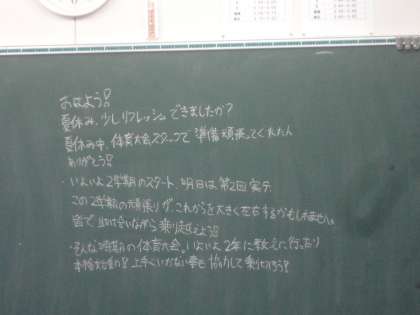 おはよう!
夏休み、少しリフレッシュできましたか?
夏休み中、体育大会スタッフで準備頑張ってくれた人
ありがとう!
・いよいよ2学期のスタート、明日は第2回実テ
この2学期の頑張りが、これからを大きく左右するかもしれません。
皆で助け合いながら乗り越えよう!
・そんな2学期の体育大会。いよいよ2年に教えに行
本格始動! 上手くいかない事も協力して乗り切ろう!